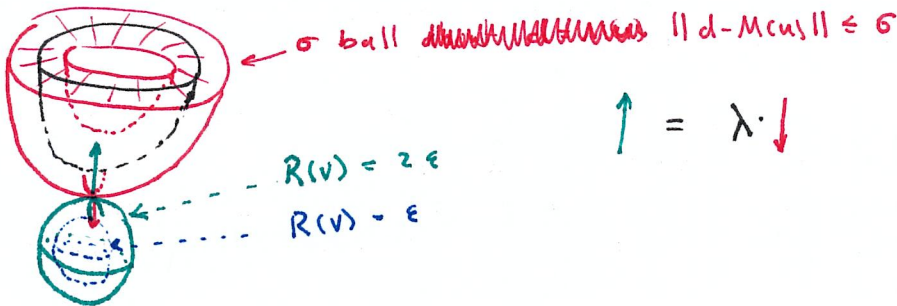 σ ball || d - M(u) || ≤ σ
= λ·
R(v) = 2 ε
R(v) = ε